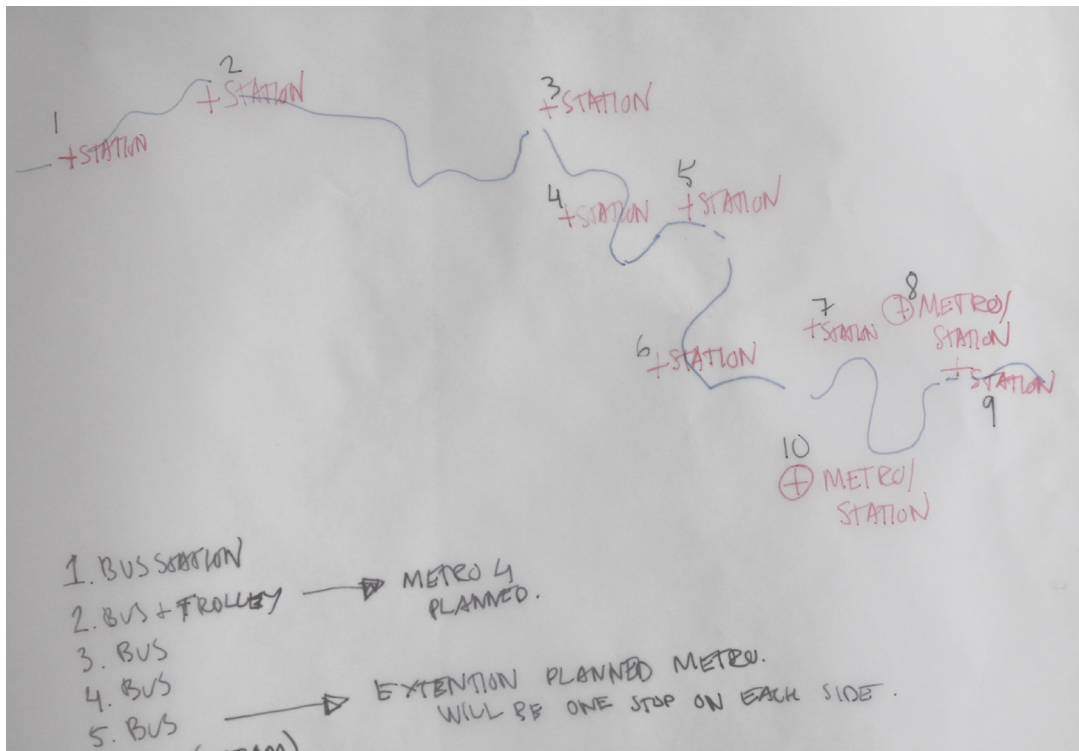 1
+STATION
2
+STATION
3
+STATION
4
+STATION
5
+STATION
6
+STATION
7
+STATION
8
+ METRO/
STATION
+
STATION
9
10
+ METRO/
STATION
1. BUS STATION
2. BUS + TROLLEY → METRO 4
PLANNED.
3. BUS
4. BUS
5. BUS → EXTENTION PLANNED METRO.
WILL BE ONE STOP ON EACH SIDE.